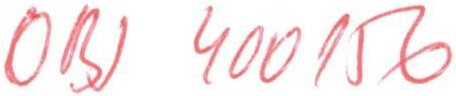 OBJ 400156